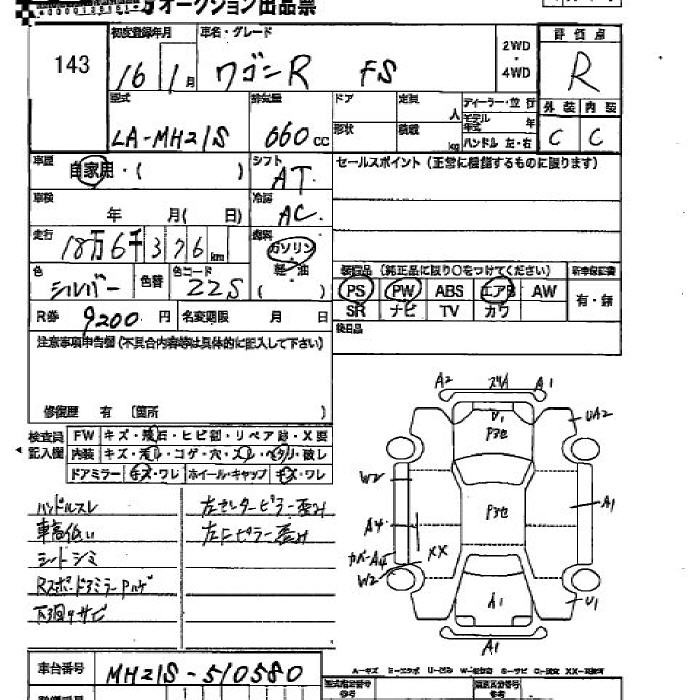 オークション出品票
143
初度登録年月 車名・グレード
16年 1月 ワゴンR FS
2WD ・ 4WD
評価点
R
外装 内装
C C
型式 排気量 ドア 定員 人 ディーラー・並行
LA-MH21S 660cc 形状 積載 kg モデル年式 年
ハンドル 左・右
車歴 自家用・( ) シフト AT
セールスポイント (正常に機能するものに限ります)
車検 年 月( 日) 冷房 AC
走行 18万6千376km 燃料 ガソリン 軽・油 ( )
色 シルバー 色替 色コード ZZS
装備品 (純正品に限り○をつけてください) 新車保証書
PS PW ABS エアB AW 有・無
SR ナビ TV カワ
R券 9200円 名変期限 月 日
後日品
注意事項申告欄 (不具合内容等は具体的に記入して下さい)
修復歴 有 〔箇所 〕
検査員記入欄
FW キズ・飛石・ヒビ割・リペア跡・X要
内装 キズ・汚レ・コゲ・穴・スレ・ヘタリ・破レ
ドアミラー キズ・ワレ ホイール・キャップ キズ・ワレ
ハンドルスレ
車高低い
シートシミ
Rスポ・ドアミラーPハゲ
下回りサビ
左センターピラー歪み
左Fピラー歪み
A2 スリA A1
U1
Pヨセ
UA2
W2
Pヨセ
A1
A4
カバーA4
XX
W2
A1
U1
A1
車台番号 MH21S-510580